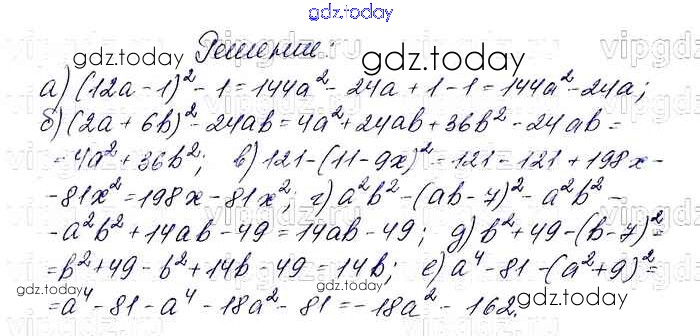 gdz.today
Решение:
gdz.today
gdz.today
а) (12a - 1)² - 1 = 144a² - 24a + 1 - 1 = 144a² - 24a;
б) (2a + 6b)² - 24ab = 4a² + 24ab + 36b² - 24ab =
- 4a² + 36b²; в) 121 - (11 - 9x)² = 121 - 121 + 198x -
- 81x² = 198x - 81x²; г) a²b² - (ab - 7)² - a²b² -
- a²b² + 14ab - 49 = 14ab - 49; д) b² + 49 - (b - 7)² =
= b² + 49 - b² + 14b - 49 = 14b; е) a⁴ - 81 - (a² + 9)² =
= a⁴ - 81 - a⁴ - 18a² - 81 = - 18a² - 162.
gdz.today
gdz.today